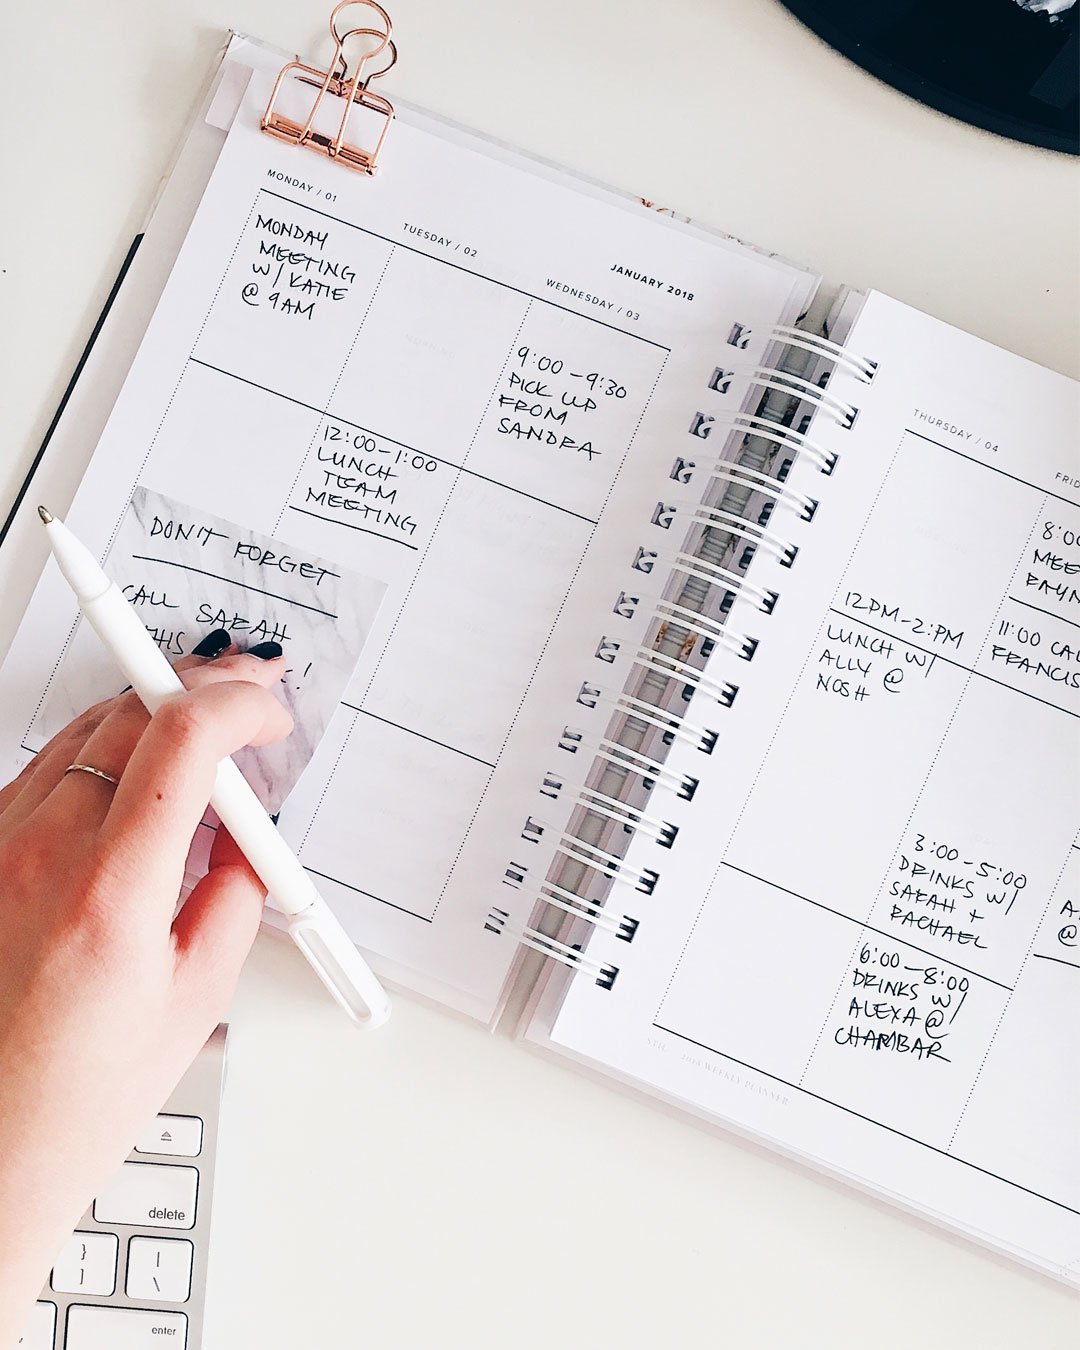 MONDAY / 01
MONDAY
MEETING
W/ KATIE
@ 9AM
TUESDAY / 02
12:00-1:00
LUNCH
TEAM
MEETING
JANUARY 2018
WEDNESDAY / 03
9:00-9:30
PICK UP
FROM
SANDRA
DON'T FORGET
CALL SARAH
THIS
!
THURSDAY / 04
12PM-2:PM
LUNCH W/
ALLY @
NOSH
FRID
8:00
MEE
RAYN
11:00 CAL
FRANCIS
3:00-5:00
DRINKS W/
SARAH +
RACHAEL
6:00-8:00
DRINKS W/
ALEXA @
CHAMBAR
A
@
2018 WEEKLY PLANNER
delete
}
]
|
\
enter